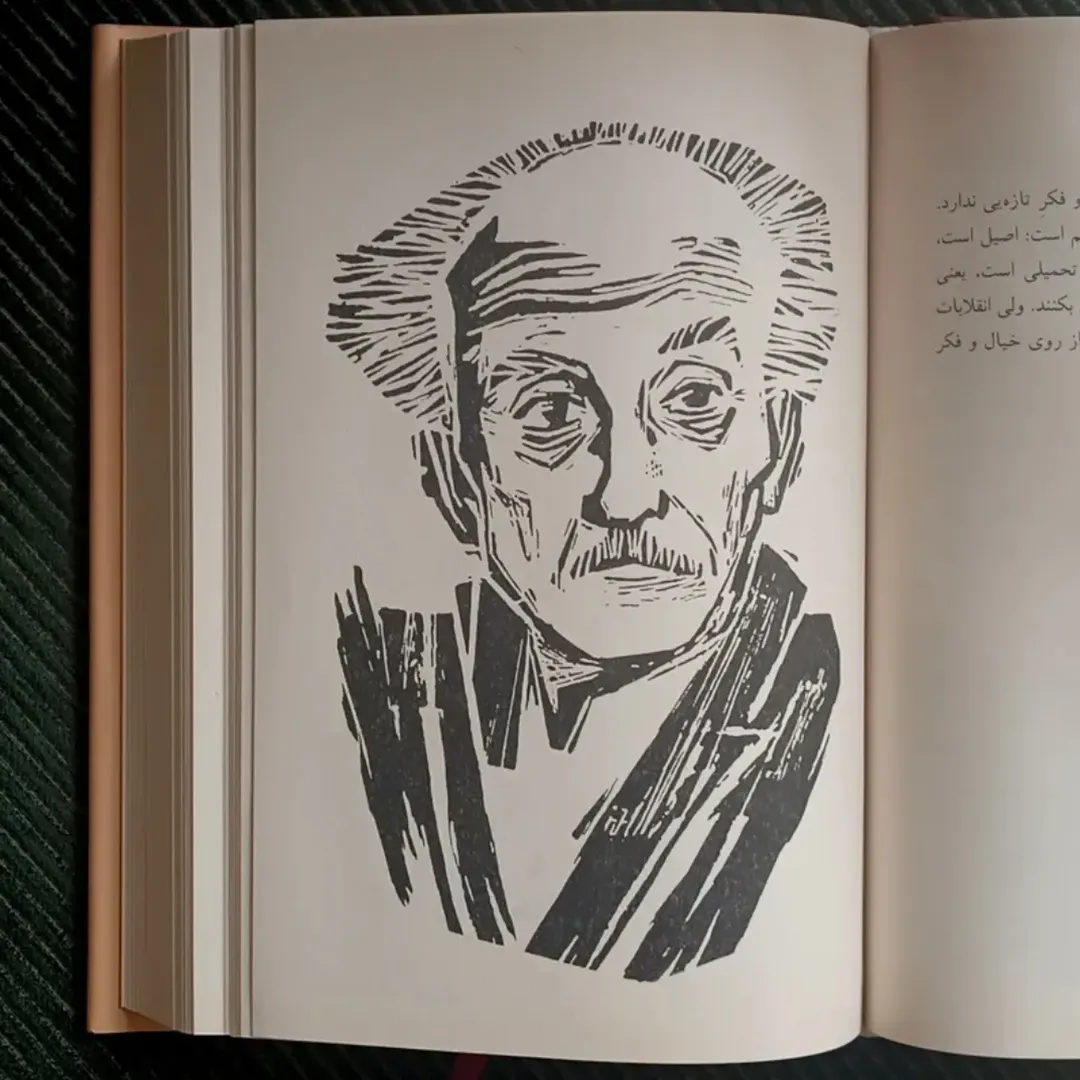 و فکرِ تازه‌یی ندارد.
است: اصیل است،
تحمیلی است، یعنی
بکنند. ولی انقلابات
از روی خیال و فکر